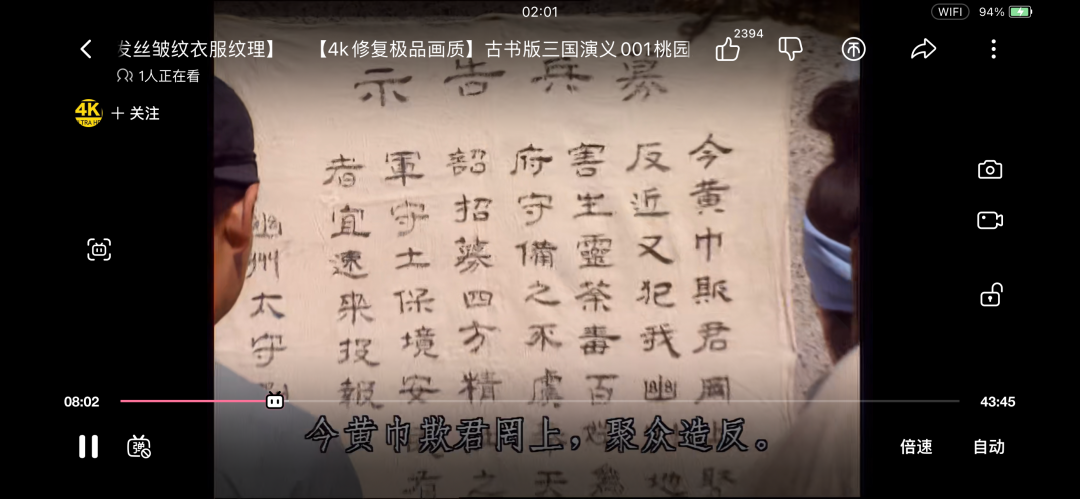 02:01
WIFI 94%
发丝皱纹衣服纹理】 【4k修复极品画质】古书版三国演义001桃园
2394
1人正在看
4K
+ 关注
募兵告示
今黄巾欺君罔
聚
反近又犯我幽
地
害生靈荼毒百
為
府守備之不虞
天
韶招募四方精
之
軍守土保境安
有
者宜速来投報
幽州太守
今黄巾欺君罔上，聚众造反。
08:02
43:45
弹
倍速
自动